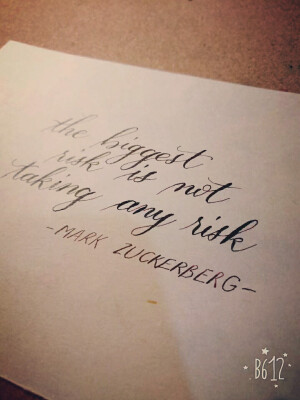 the biggest
risk is not
taking any risk
-MARK ZUCKERBERG-
B612